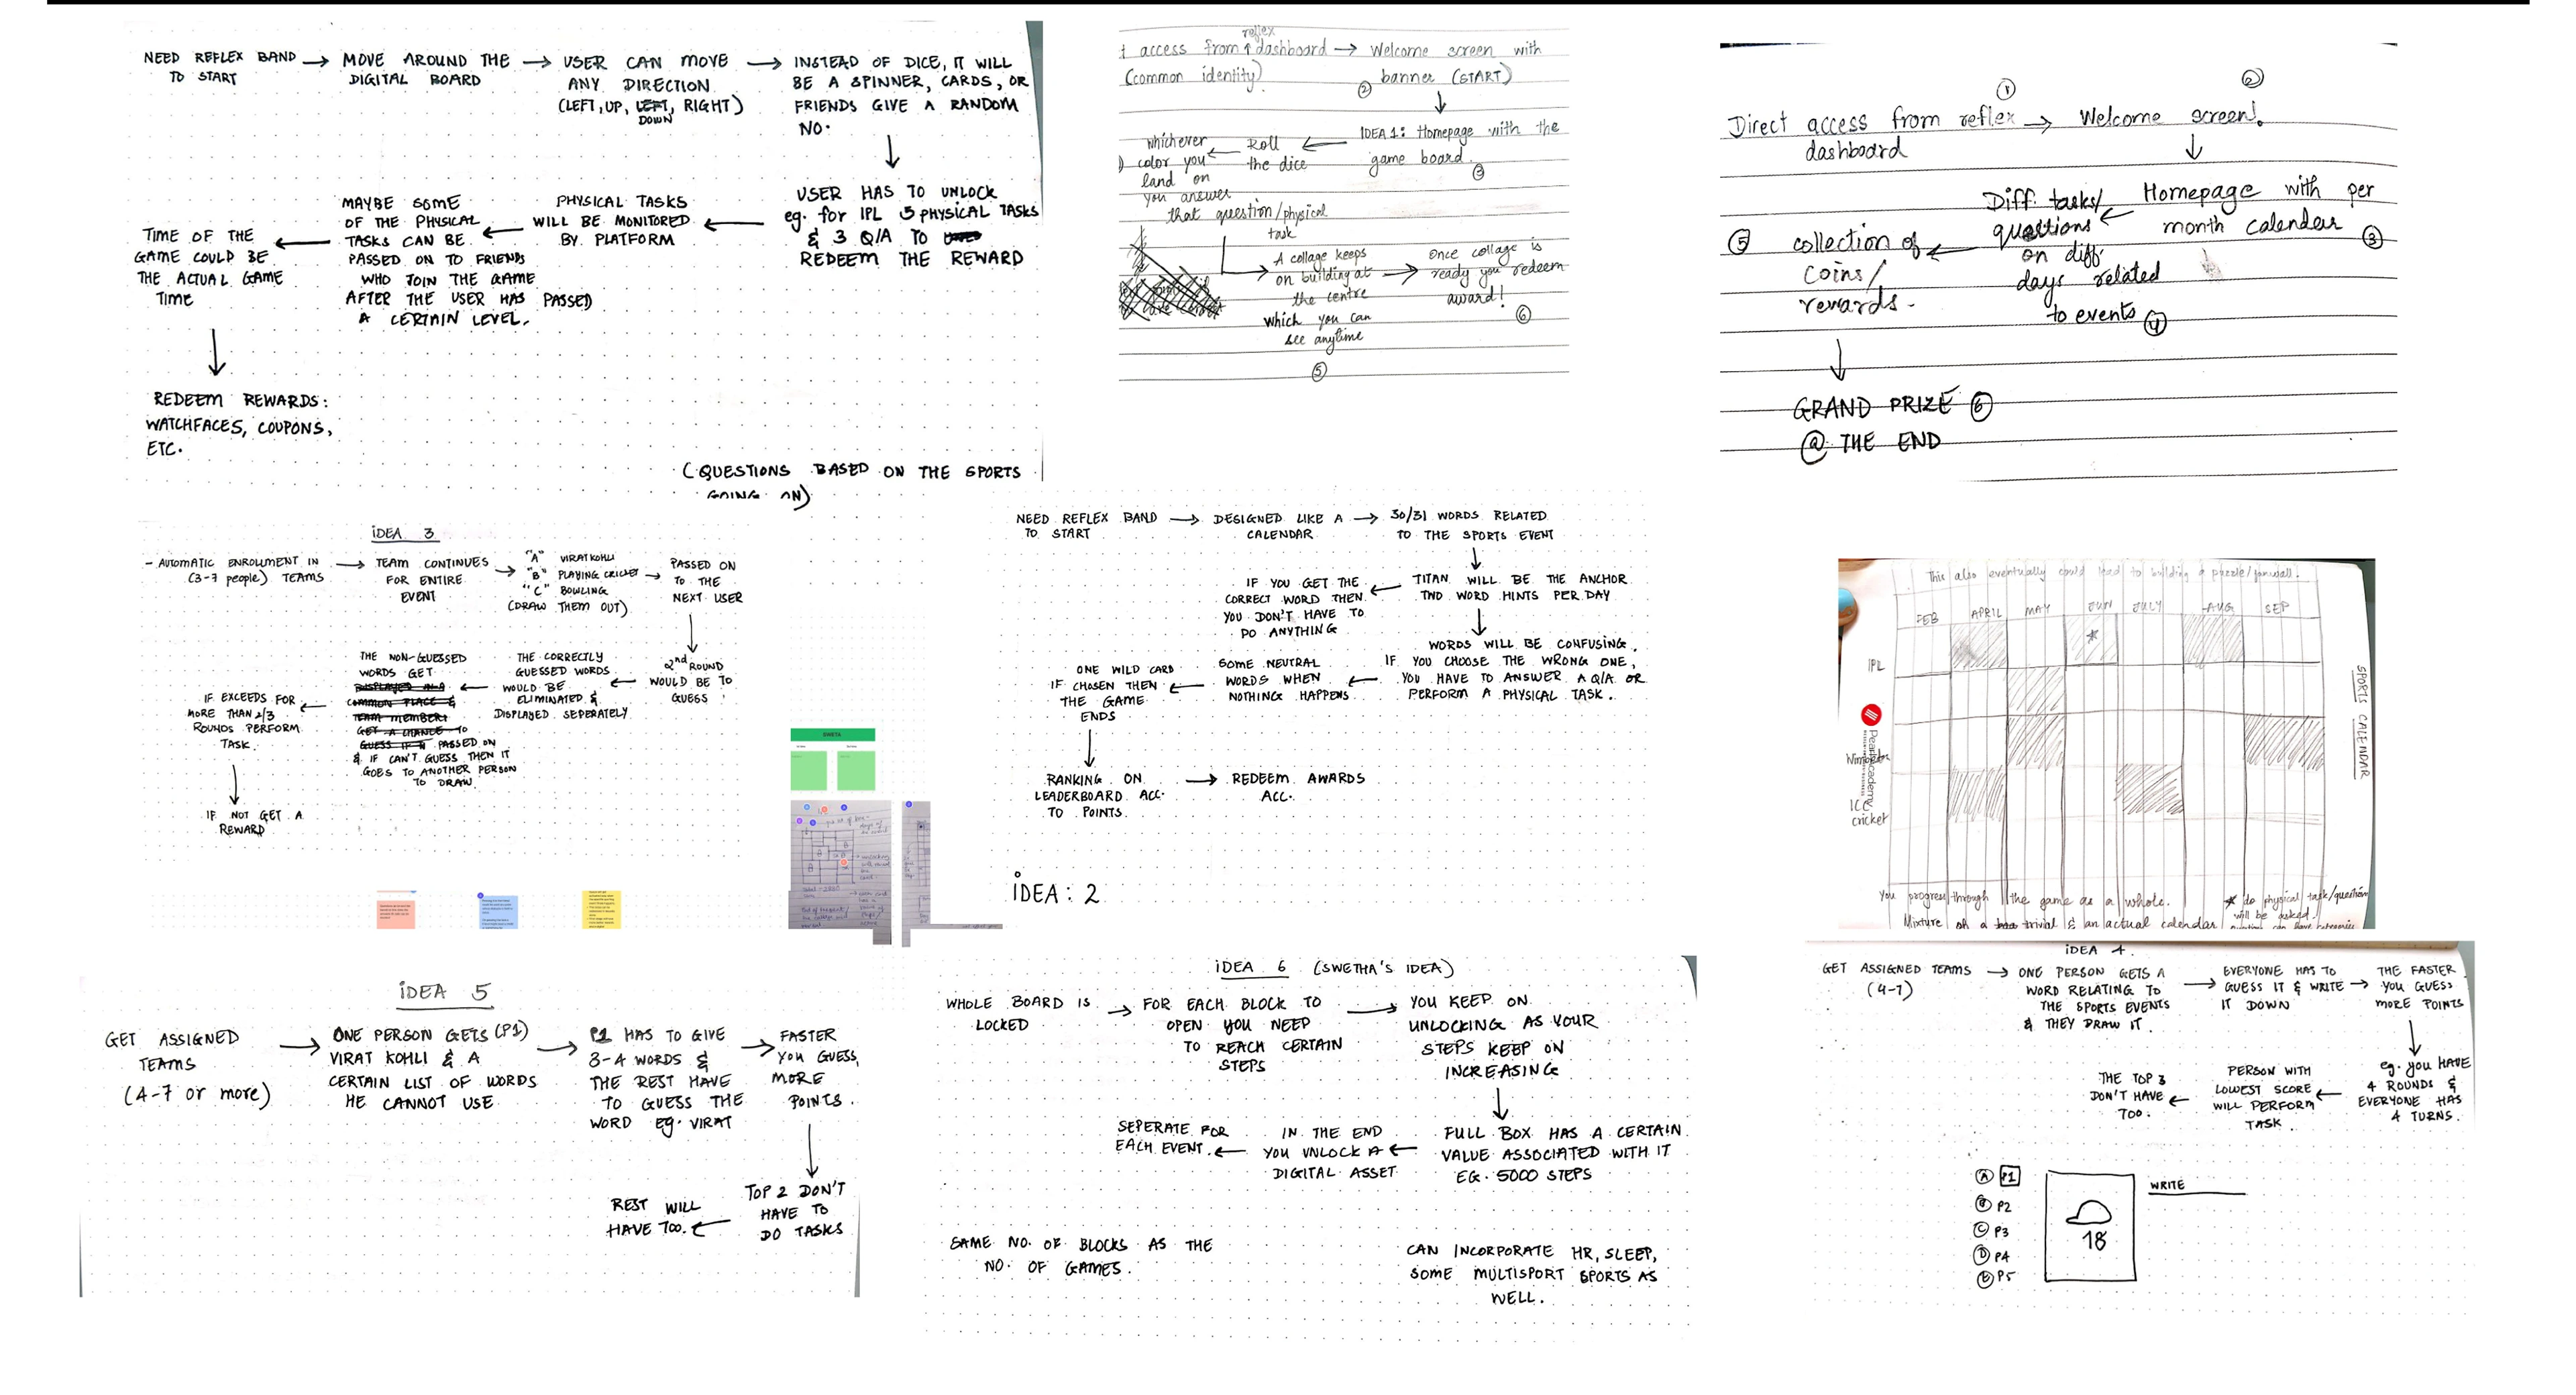 NEED REFLEX BAND → MOVE AROUND THE → USER CAN MOVE → INSTEAD OF DICE, IT WILL
TO START DIGITAL BOARD ANY DIRECTION BE A SPINNER, CARDS, OR
(LEFT, UP, LEFT, RIGHT) FRIENDS GIVE A RANDOM
DOWN
NO.
USER HAS TO UNLOCK
eg. for IPL 5 PHYSICAL TASKS
& 3 Q/A TO
REDEEM THE REWARD
PHYSICAL TASKS
WILL BE MONITORED
BY PLATFORM
MAYBE SOME
OF THE PHYSICAL
TASKS CAN BE
PASSED ON TO FRIENDS
WHO JOIN THE GAME
AFTER THE USER HAS PASSED
A CERTAIN LEVEL.
TIME OF THE
GAME COULD BE
THE ACTUAL GAME
TIME
REDEEM REWARDS:
WATCHFACES, COUPONS,
ETC.
(QUESTIONS BASED ON THE SPORTS
GOING ON)
reflex
access from dashboard → Welcome screen with
(common identity) banner (START)
②
IDEA 1: Homepage with the
game board
③
Roll
the dice
whichever
color you
land on
you answer
that question/physical
task
A collage keeps
on building at
the centre
which you can
see anytime
⑤
Once collage is
ready you redeem
award!
⑥
① ②
Direct access from reflex → Welcome screen!
dashboard
Homepage with per
month calendar ③
Diff. tasks/
questions
on diff
days related
to events ④
⑤ collection of
coins/
rewards.
GRAND PRIZE ⑥
@ THE END
IDEA 3
- AUTOMATIC ENROLLMENT IN
(3-7 people) TEAMS
TEAM CONTINUES
FOR ENTIRE
EVENT
"A" VIRAT KOHLI
"B" PLAYING CRICKET
"C" BOWLING
(DRAW THEM OUT)
PASSED ON
TO THE
NEXT USER
2nd ROUND
WOULD BE TO
GUESS
THE CORRECTLY
GUESSED WORDS
WOULD BE
ELIMINATED &
DISPLAYED SEPERATELY
THE NON-GUESSED
WORDS GET
DISPLAYED IN A
COMMON PLACE &
TEAM MEMBERS
GET A CHANCE TO
GUESS IT PASSED ON
& IF CAN'T GUESS THEN IT
GOES TO ANOTHER PERSON
TO DRAW
IF EXCEEDS FOR
MORE THAN 2/3
ROUNDS PERFORM
TASK.
IF NOT GET A
REWARD
SWETA
NEED REFLEX BAND → DESIGNED LIKE A → 30/31 WORDS RELATED
TO START CALENDAR TO THE SPORTS EVENT
TITAN WILL BE THE ANCHOR
TWO WORD HINTS PER DAY
IF YOU GET THE
CORRECT WORD THEN
YOU DON'T HAVE TO
DO ANYTHING
WORDS WILL BE CONFUSING.
IF YOU CHOOSE THE WRONG ONE,
YOU HAVE TO ANSWER A Q/A OR
PERFORM A PHYSICAL TASK.
SOME NEUTRAL
WORDS WHEN
NOTHING HAPPENS
ONE WILD CARD
IF CHOSEN THEN
THE GAME
ENDS
RANKING ON
LEADERBOARD ACC.
TO POINTS.
REDEEM AWARDS
ACC.
IDEA: 2
This also eventually could lead to building a puzzle/
FEB APRIL MAY JUN JULY AUG SEP
IPL
ICC
cricket
SPORTS CALENDAR
Pearl Academy
You progress through the game as a whole.
* do physical task/question
will be asked.
Mixture of a trivial & an actual calendar
IDEA 5
GET ASSIGNED
TEAMS
(4-7 or more)
ONE PERSON GETS (P1)
VIRAT KOHLI & A
CERTAIN LIST OF WORDS
HE CANNOT USE
P1 HAS TO GIVE
3-4 WORDS &
THE REST HAVE
TO GUESS THE
WORD eg. VIRAT
FASTER
YOU GUESS,
MORE
POINTS.
TOP 2 DON'T
HAVE TO
DO TASKS
REST WILL
HAVE TOO.
IDEA 6 (SWETHA'S IDEA)
WHOLE BOARD IS
LOCKED
FOR EACH BLOCK TO
OPEN YOU NEED
TO REACH CERTAIN
STEPS
YOU KEEP ON
UNLOCKING AS YOUR
STEPS KEEP ON
INCREASING
FULL BOX HAS A CERTAIN
VALUE ASSOCIATED WITH IT
EG. 5000 STEPS
IN THE END
YOU UNLOCK A
DIGITAL ASSET
SEPERATE FOR
EACH EVENT.
SAME NO. OF BLOCKS AS THE
NO. OF GAMES.
CAN INCORPORATE HR, SLEEP,
SOME MULTISPORT SPORTS AS
WELL.
IDEA 4
GET ASSIGNED TEAMS
(4-7)
ONE PERSON GETS A
WORD RELATING TO
THE SPORTS EVENTS
& THEY DRAW IT.
EVERYONE HAS TO
GUESS IT & WRITE
IT DOWN
THE FASTER
YOU GUESS
MORE POINTS
eg. YOU HAVE
4 ROUNDS &
EVERYONE HAS
4 TURNS.
PERSON WITH
LOWEST SCORE
WILL PERFORM
TASK.
THE TOP 3
DON'T HAVE
TOO.
Ⓐ P1
Ⓑ P2
Ⓒ P3
Ⓓ P4
Ⓔ P5
18
WRITE